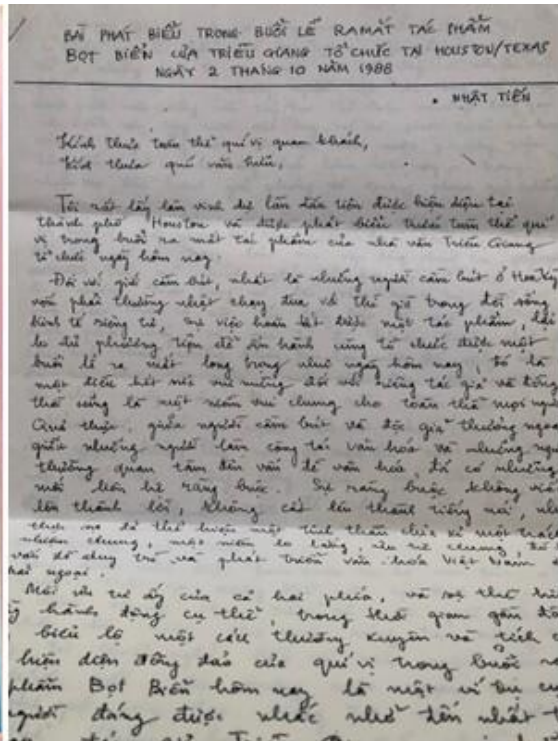 BÀI PHÁT BIỂU TRONG BUỔI LỄ RA MẮT TÁC PHẨM
BỌT BIỂN CỦA TRIỀU GIANG TỔ CHỨC TẠI HOUSTON/TEXAS
NGÀY 2 THÁNG 10 NĂM 1988
• NHẬT TIẾN
Kính thưa toàn thể quí vị quan khách,
Kính thưa quí văn hữu,
Tôi rất lấy làm vinh dự lần đầu tiên được hiện diện tại
thành phố Houston và được phát biểu trước toàn thể quí
vị trong buổi ra mắt tác phẩm của nhà văn Triều Giang
tổ chức ngày hôm nay.
Đối với giới cầm bút, nhất là những người cầm bút ở Hoa Kỳ
vốn phải thường nhật chạy đua với thì giờ trong đời sống
kinh tế riêng tư, sự việc hoàn tất được một tác phẩm, lại
lo đủ phương tiện để ấn hành cùng tổ chức được một
buổi lễ ra mắt long trọng như ngày hôm nay, đó là
một điều hết sức vui mừng đối với riêng tác giả và đồng
thời cũng là một niềm vui chung cho toàn thể mọi người
Quả thực, giữa người cầm bút và độc giả thưởng ngoạn
giữa những người làm công tác văn hóa và những
thường quan tâm đến vấn đề văn hóa, đã có những
mối liên hệ ràng buộc. Sự ràng buộc không viết
lên thành lời, không cất lên thành tiếng nói,
thể hiện một tinh thần chia xẻ một trách
nhiệm chung, một niềm lo lắng, ưu tư chung,
vấn đề duy trì và phát triển văn hóa Việt Nam
hải ngoại.
Mối ưu tư ấy của cả hai phía, và sự thể
hành động cụ thể, trong thời gian gần
biểu lộ một cách thường xuyên và tích
hiện diện đông đảo của quí vị trong buổi
phẩm Bọt Biển hôm nay là một ví dụ
người đáng được nhắc nhở đến nhất